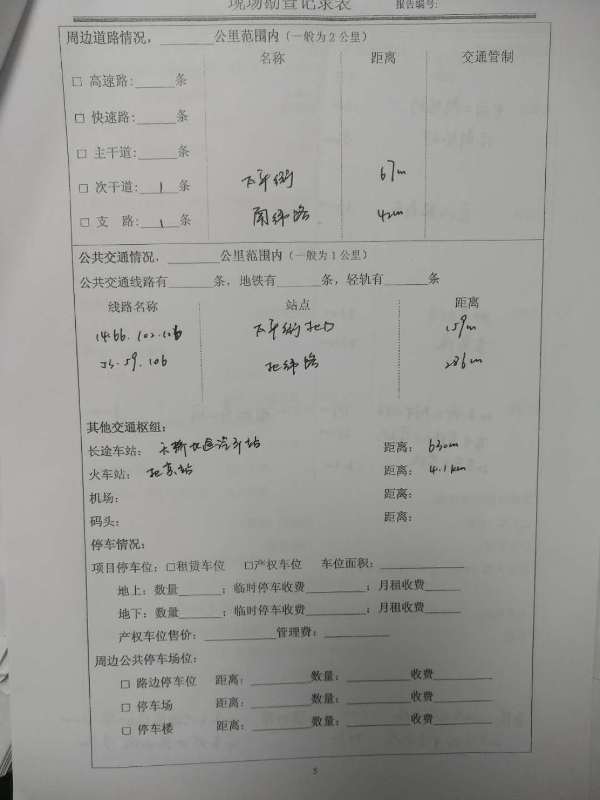 现场勘查记录表 报告编号:
周边道路情况，______公里范围内（一般为2公里）
名称 距离 交通管制
□ 高速路:____条
□ 快速路:____条
□ 主干道:____条
□ 次干道: 1 条 67m
□ 支 路: 1 条 南纬路 42m
公共交通情况，______公里范围内（一般为1公里）
公共交通线路有______条，地铁有______条，轻轨有______条
线路名称 站点 距离
159m
59.106 北纬路 286m
其他交通枢组：
长途车站： 天桥长途汽车站 距离： 630m
火车站： 北京站 距离： 4.1km
机场： 距离：
码头： 距离：
停车情况：
项目停车位：□租赁车位 □产权车位 车位面积：__________
地上：数量______；临时停车收费________；月租收费_____
地下：数量______；临时停车收费________；月租收费_____
产权车位售价：__________管理费：_____
周边公共停车场位：
□ 路边停车位 距离：________数量：________收费________
□ 停车场 距离：________数量：________收费________
□ 停车楼 距离：________数量：________收费________
5